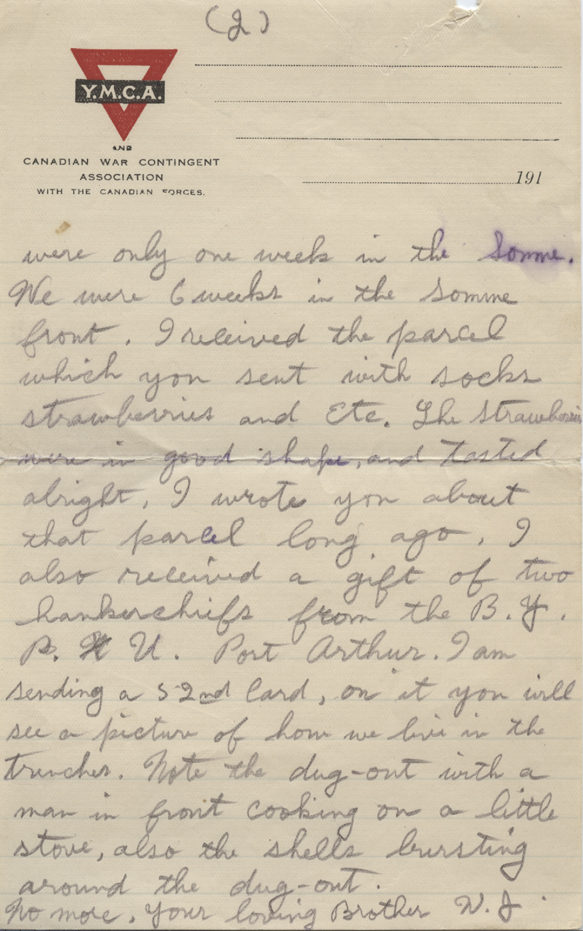 (2)
Y.M.C.A.
AND
CANADIAN WAR CONTINGENT
ASSOCIATION
WITH THE CANADIAN FORCES.
191
were only one week in the Somme.
We were 6 weeks in the Somme
front. I received the parcel
which you sent with socks
strawberries and Etc. The Strawberries
were in good shape, and tasted
alright, I wrote you about
that parcel long ago. I
also received a gift of two
hankerchiefs from the B.Y.
P. U. Port Arthur. I am
sending a 52nd Card, on it you will
see a picture of how we live in the
trenches. Note the dug-out with a
man in front cooking on a little
stove, also the shells bursting
around the dug-out.
No more, Your loving Brother W.J.